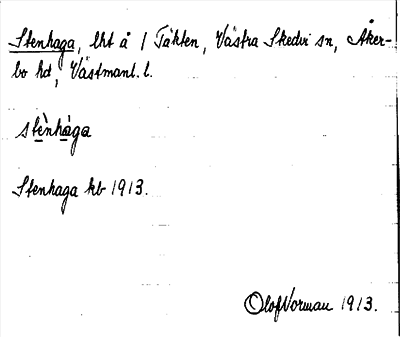 Stenhaga, lht å 1 Täkten, Västra Skedvi sn, Åker-
bo hd, Västmanl. l.
stènhàga
Stenhaga kb 1913.
Olof Norman 1913.